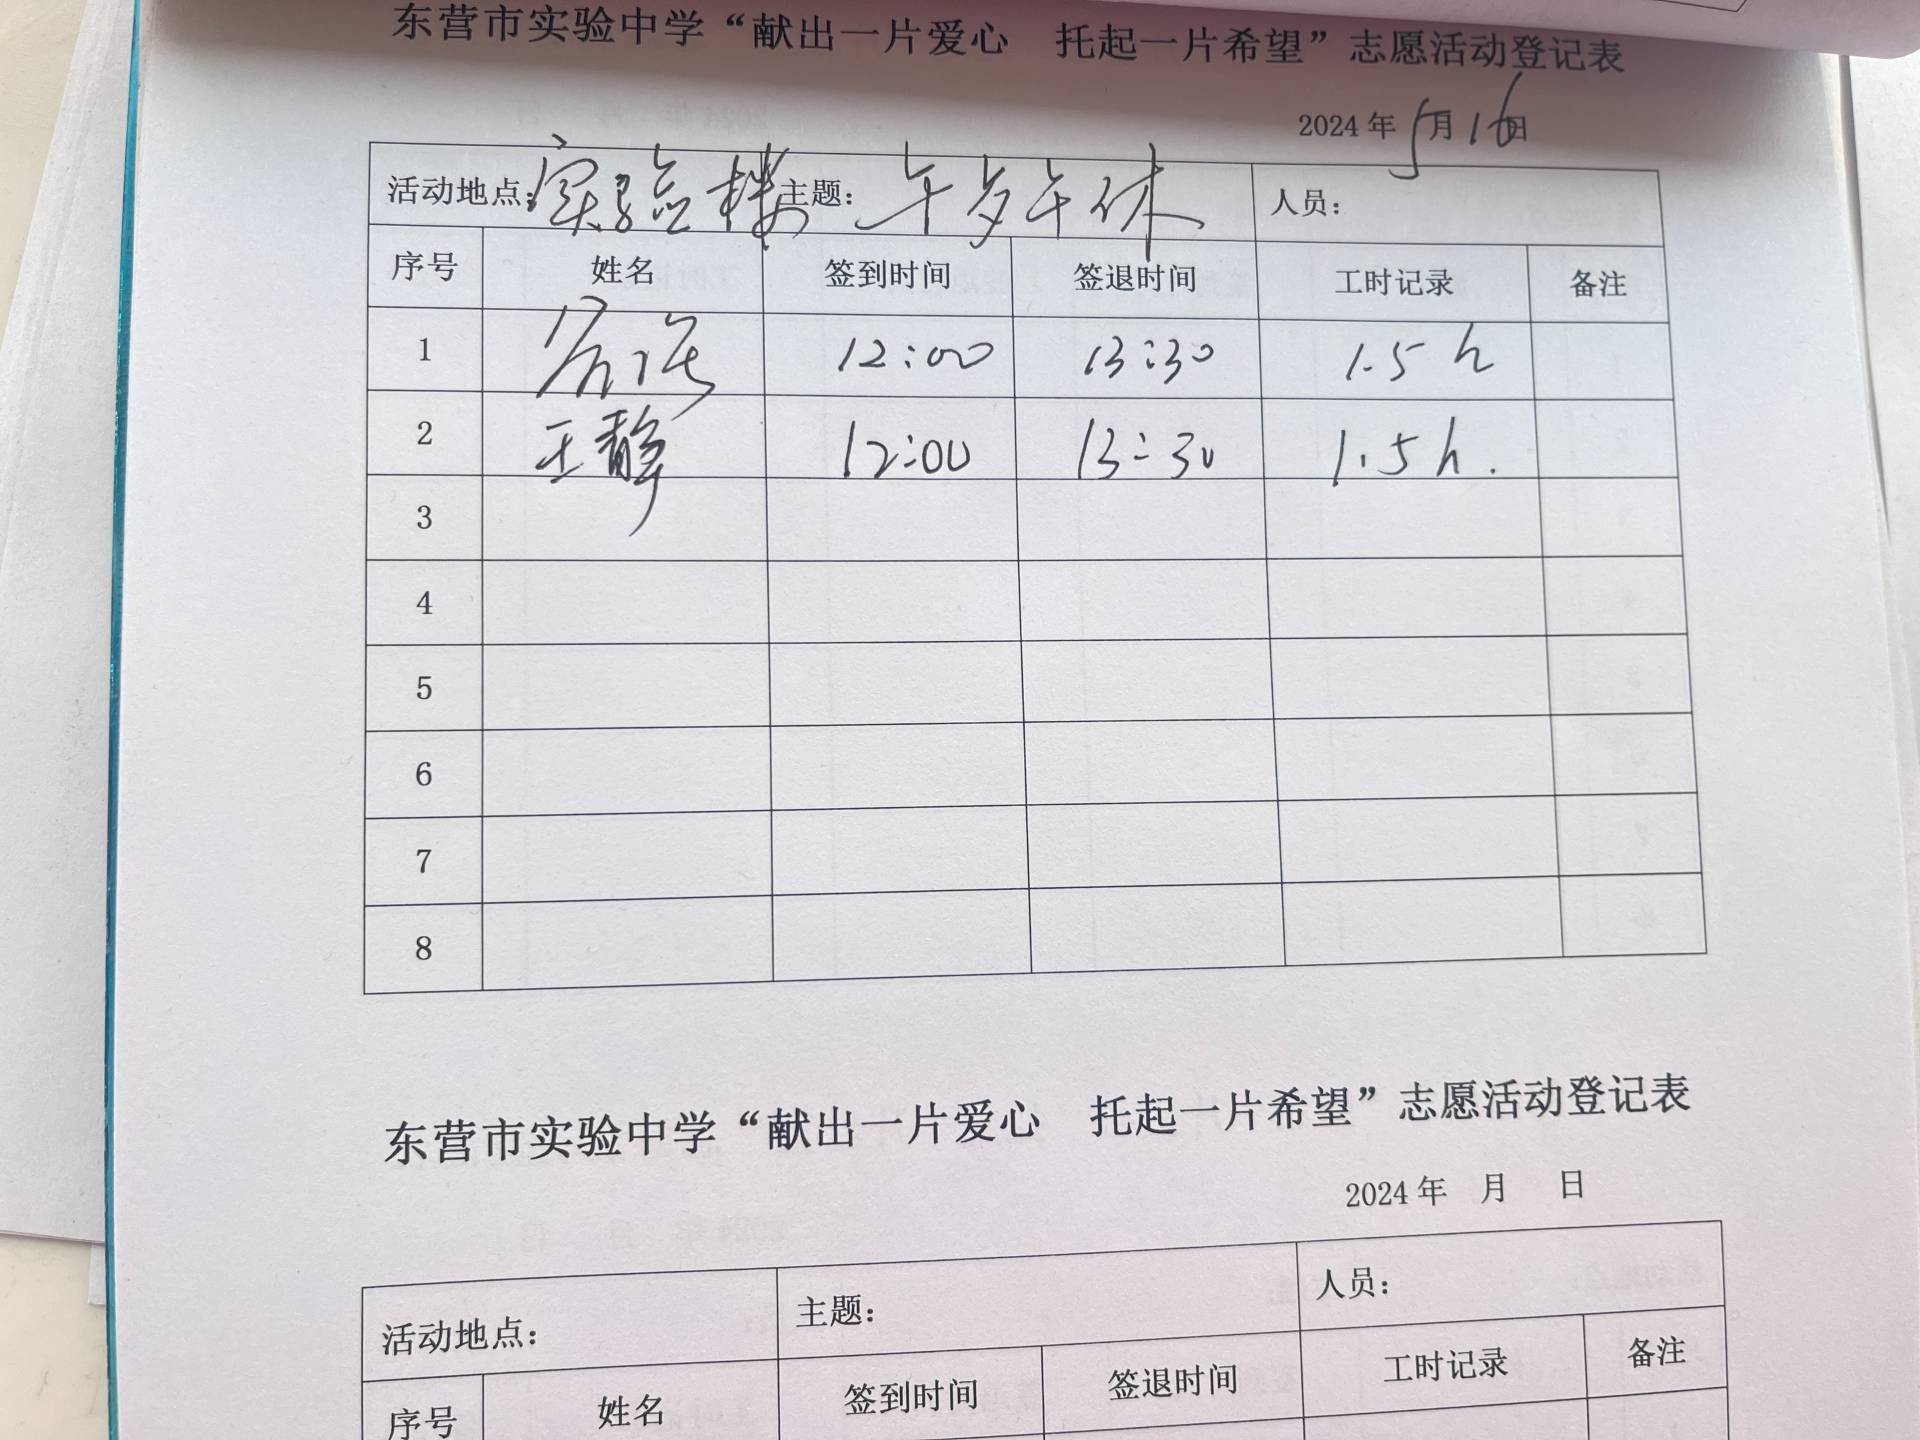 东营市实验中学“献出一片爱心 托起一片希望”志愿活动登记表
2024年5月16日
活动地点：实验楼 主题： 午休 人员：
序号 姓名 签到时间 签退时间 工时记录 备注
1 12:00 13:30 1.5h
2 王静 12:00 13:30 1.5h.
3
4
5
6
7
8
东营市实验中学“献出一片爱心 托起一片希望”志愿活动登记表
2024年 月 日
活动地点： 主题： 人员：
序号 姓名 签到时间 签退时间 工时记录 备注